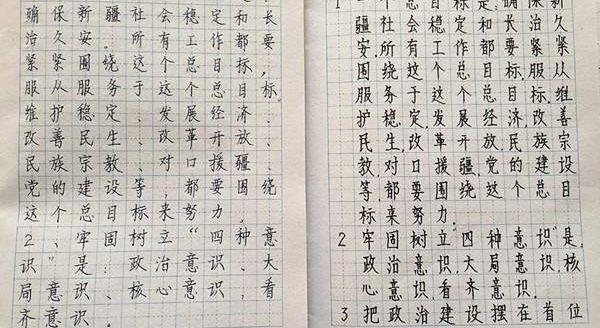 确保新疆社会稳定和长
治久安。所有工作都要
紧紧围绕这个总目标，
服从服务于这个总目标。
维护稳定、发展经济、
改善民生、改革开放、
民族宗教、对口援疆、
党的建设等，都要围绕
这个总目标来努力。
2、牢固树立“四种意
识”是政治意识，大
局意识、核心意识，看
齐意识。
1 一个总目标是:确保新
疆社会稳定和长治久
安.所有工作都要紧紧
围绕这个总目标.服从
服务于这个总目标.维
护稳定.发展经济.改善
民生.改革开放.民族宗
教.对口援疆.党的建设
等.都要围绕这个总目
标来努力.
2 牢固树立“四种意识”是,
政治意识.大局意识.核
心意识.看齐意识.
3 把政治建设摆在首位